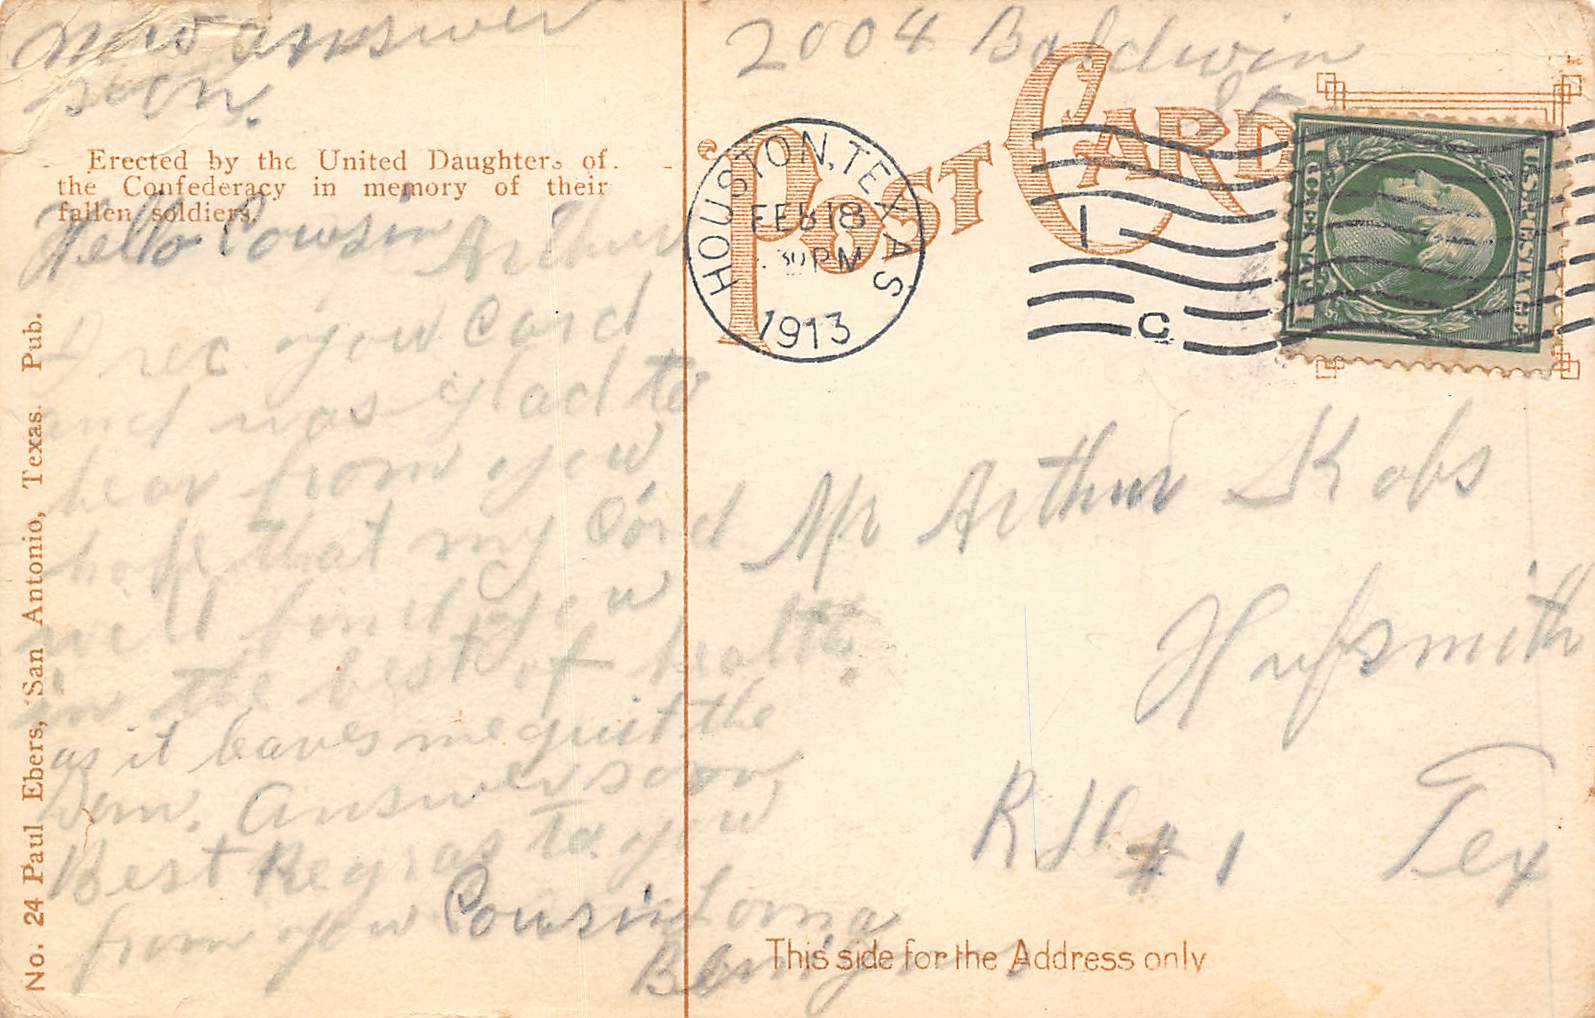 answer
soon.
2004 Baldwin
St
POST CARD
Erected by the United Daughters of
the Confederacy in memory of their
fallen soldiers.
HOUSTON, TEXAS
FEB 18
30 PM
1913
1
C
U.S. POSTAGE
Hello Cousin Arthur
I rec. your Card
and was glad to
hear from you
hope that my Card
will find you
in the best of health.
as it leaves me quit the
Answer soon
Best Regras to you
from your Cousin
No. 24 Paul Ebers, San Antonio, Texas. Pub.
Mr Arthur Kobs
Hufsmith
R.F.D. # 1 Tex
This side for the Address only